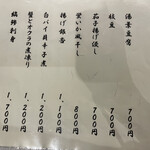 湯葉豆腐 700円
枝豆 700円
茄子揚げ浸し 700円
鷺いか風干し 800円
揚げ銀杏 1,100円
白バイ貝辛子煮 1,200円
蟹とオクラの煮凍り 1,200円
鯛卵刺身 1,700円